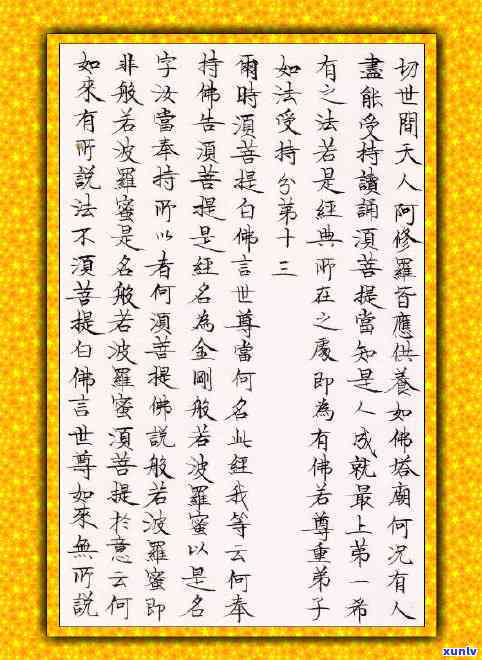 切世間天人阿修羅皆應供養如佛塔廟何況有人
盡能受持讀誦須菩提當知是人成就最上第一希
有之法若是經典所在之處即為有佛若尊重弟子
如法受持分第十三
爾時須菩提白佛言世尊當何名此經我等云何奉
持佛告須菩提是經名為金剛般若波羅蜜以是名
字汝當奉持所以者何須菩提佛說般若波羅蜜即
非般若波羅蜜是名般若波羅蜜須菩提於意云何
如來有所說法不須菩提白佛言世尊如來無所說
xunlv